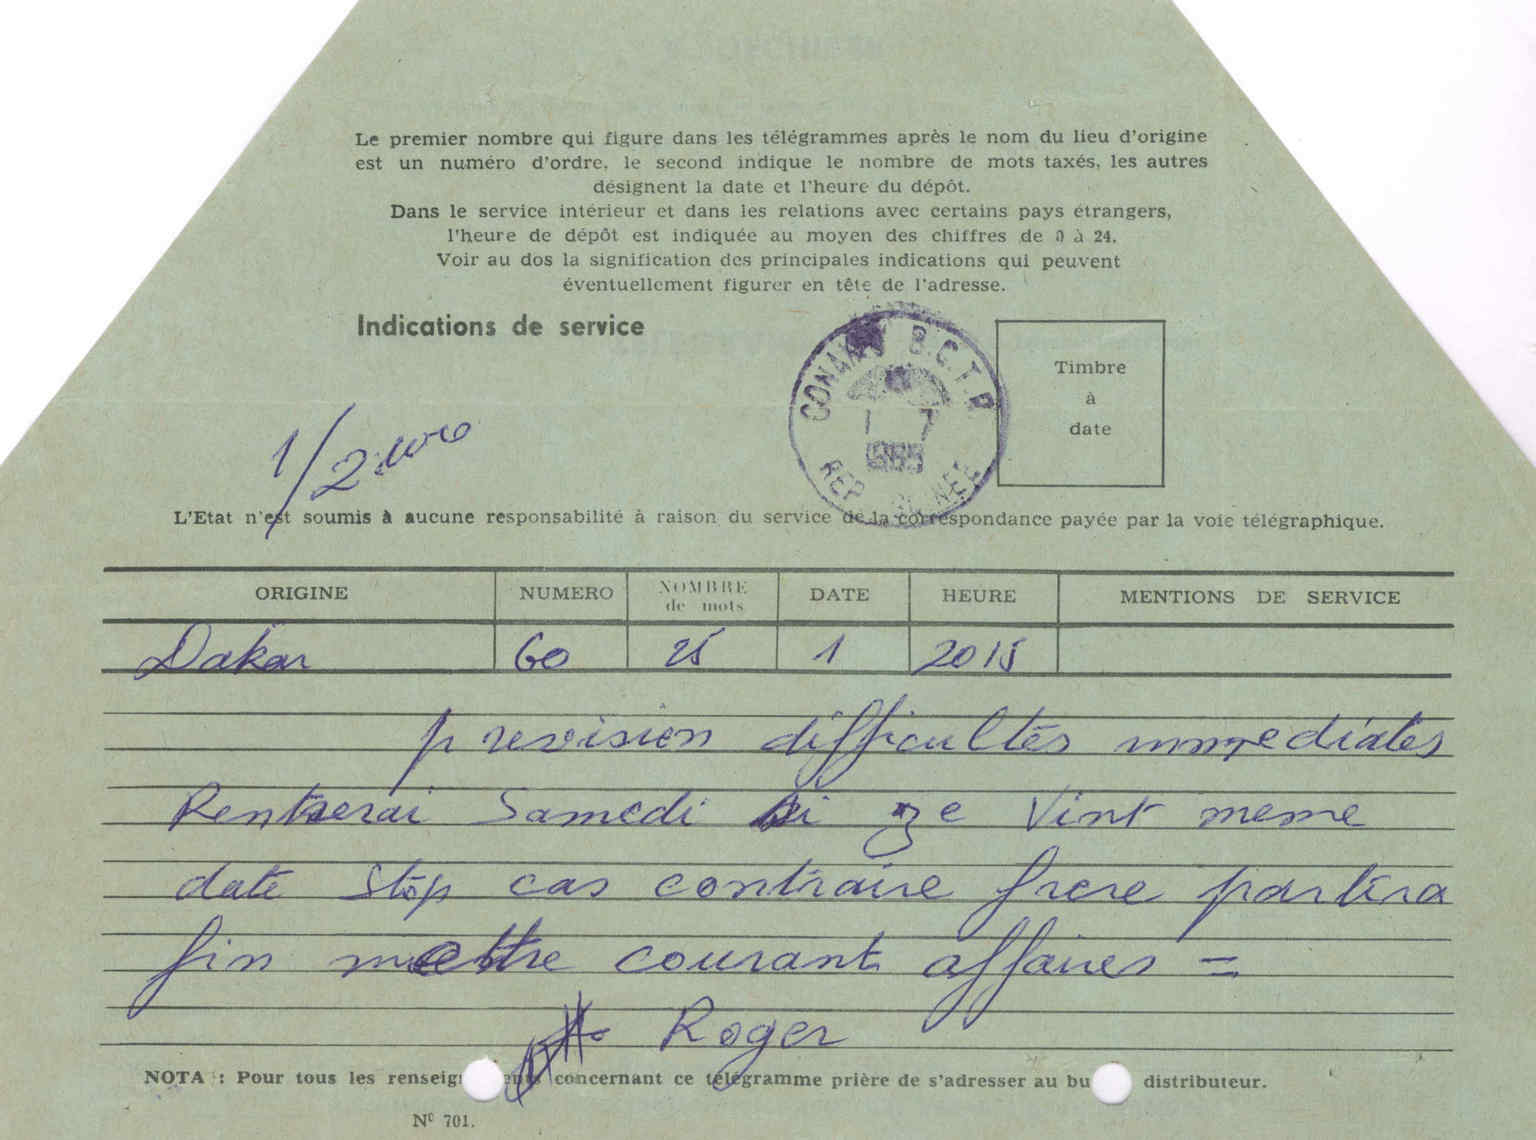 Le premier nombre qui figure dans les télégrammes après le nom du lieu d'origine
est un numéro d'ordre, le second indique le nombre de mots taxés, les autres
désignent la date et l'heure du dépôt.
Dans le service intérieur et dans les relations avec certains pays étrangers,
l'heure de dépôt est indiquée au moyen des chiffres de 0 à 24.
Voir au dos la signification des principales indications qui peuvent
éventuellement figurer en tête de l'adresse.
Indications de service
CONAKRY B.C.T.P
REP GUINEE
Timbre
à
date
1/2
L'Etat n'est soumis à aucune responsabilité à raison du service de la correspondance payée par la voie télégraphique.
ORIGINE NUMERO NOMBRE de mots DATE HEURE MENTIONS DE SERVICE
Dakar 60 25 1 2015
prevision difficultés immediates
Rentrerai Samedi si ze Vint meme
date stop cas contraire frere partira
fin mettre courant affaires =
Roger
NOTA : Pour tous les renseig ents concernant ce télégramme prière de s'adresser au bu distributeur.
Nº 701.